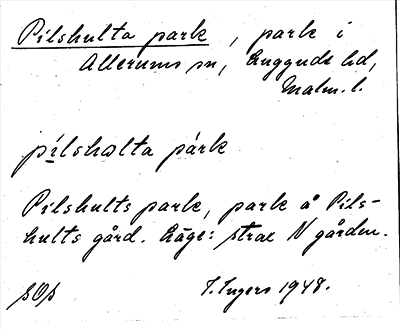 Pilshulta park, park i
Allerums sn, Luggude hd,
Malm. l.
pílshɷlta párk
Pilshults park, park å Pils-
hults gård. Läge: strax N gården.
sOs I. Ingers 1948.